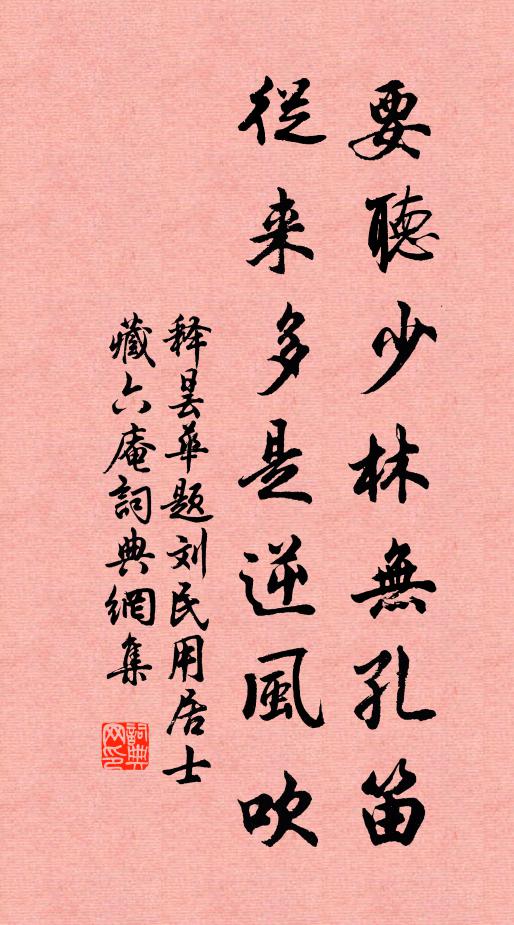 要聽少林無孔笛
從来多是逆風吹
释曇华題刘民用居士
藏六庵詞典網集
詞典网印